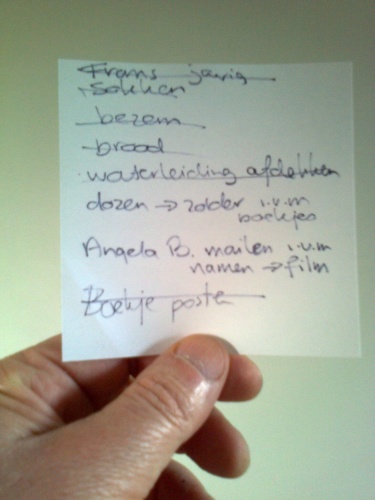 Frans jarig
- Sokken
- bezem
- brood
- waterleiding afdekken
dozen → zolder i.v.m
boekjes
Angela B. mailen i.v.m
namen → film
Boekje posten